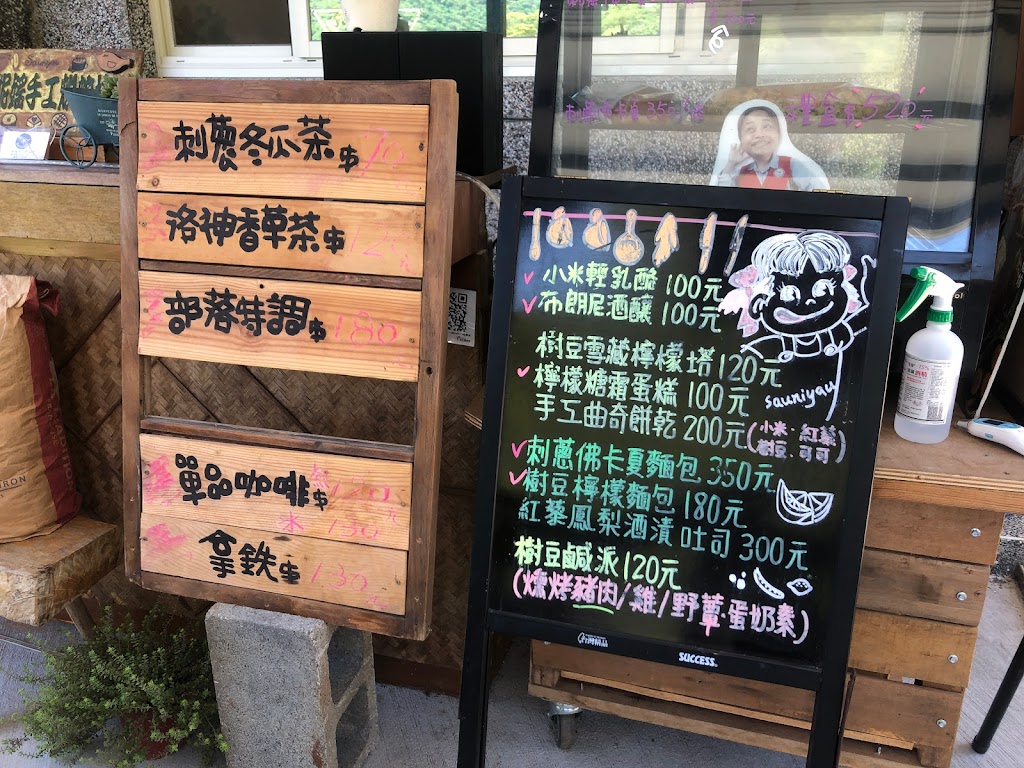 手工
刺蔥冬瓜茶 70
洛神香草茶 120
部落特調 180
單品咖啡 120
冰 130
拿鐵 130
禮盒 520元
小米輕乳酪 100元
布朗尼酒釀 100元
樹豆雪藏檸檬塔 120元
檸檬糖霜蛋糕 100元
手工曲奇餅乾 200元
(小米·紅藜
樹豆·可可)
sauniyau
刺蔥佛卡夏麵包 350元
樹豆檸檬麵包 180元
紅藜鳳梨酒漬吐司 300元
樹豆鹹派 120元
(燻烤豬肉/雞/野蕈·蛋奶素)
SUCCESS